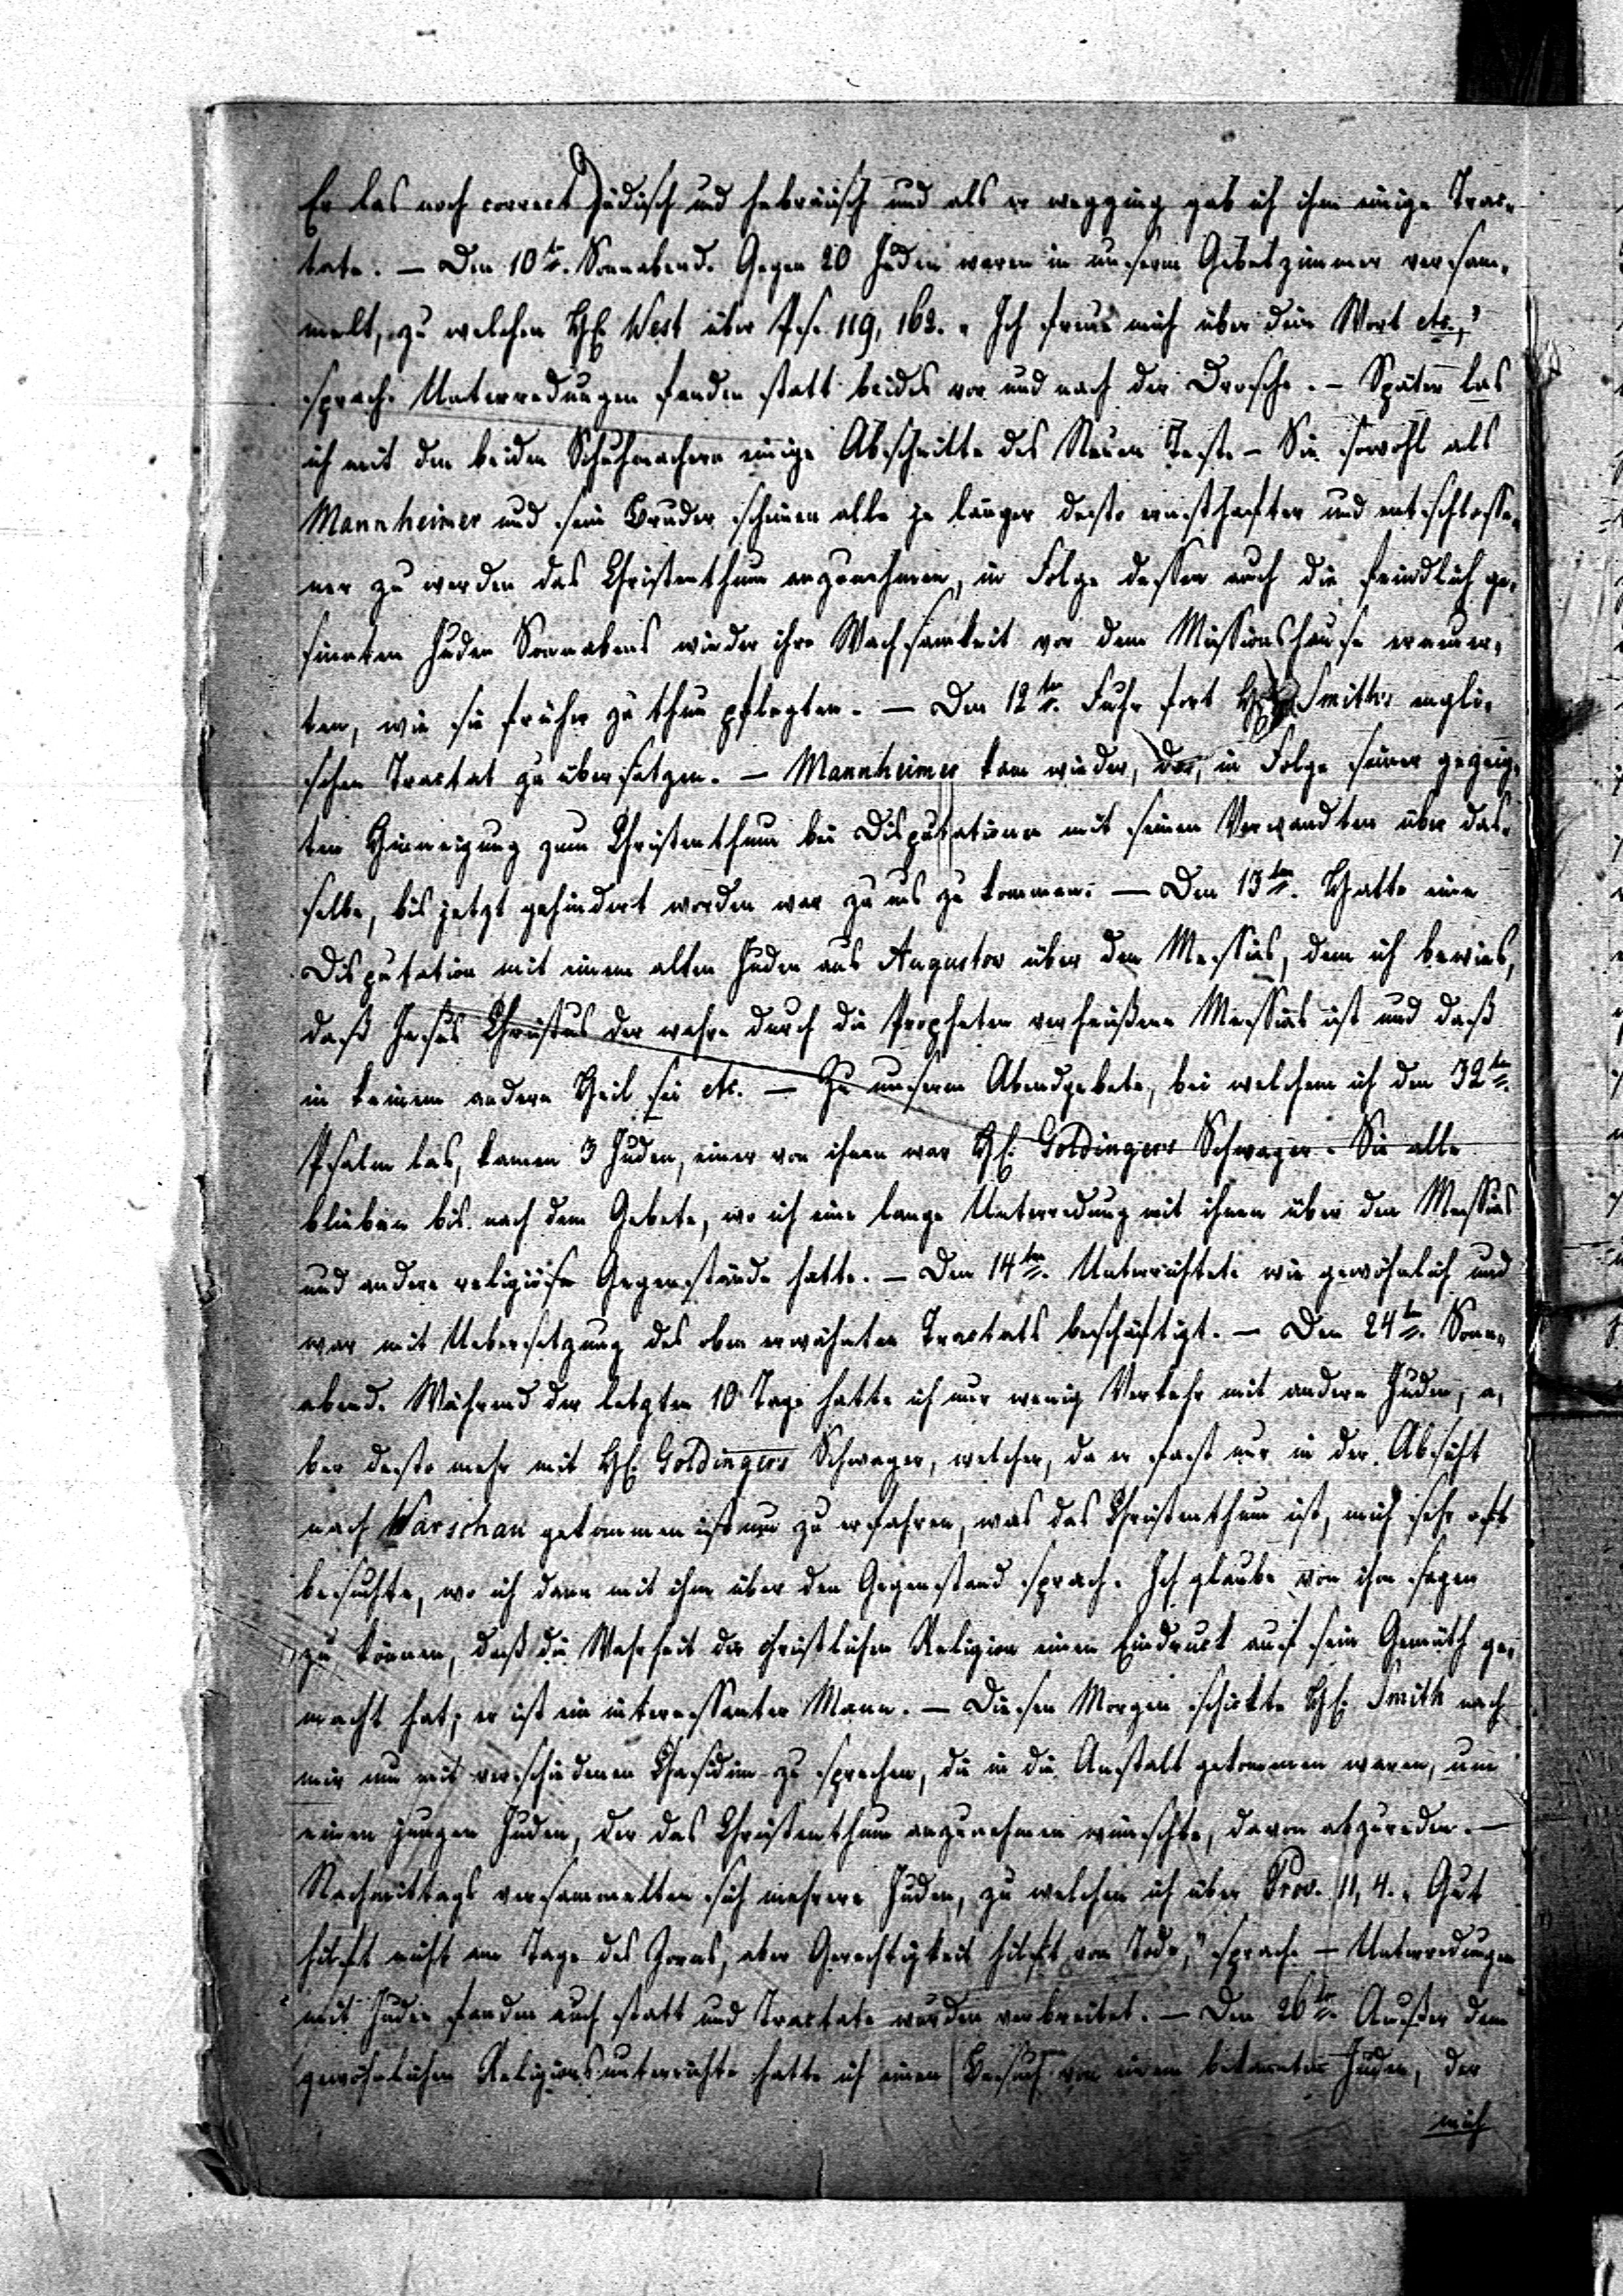 Er las noch correct Jüdisch und hebräisch und als er wegging gab ich ihm einige Trac-
tate. — Den 10ten. Sonnabend. Gegen 20 Juden waren in unserm Gebetzimmer versam-
melt, zu welchen H. West über Ps. 119, 162. „Ich freue mich über dein Wort etc.,"
sprach. Unterredungen fanden statt beides vor und nach der Drosche. — Später las
ich mit den beiden Schuhmachern einige Abschnitte des Neuen Test. — Sie sowohl als
Mannheimer und sein Bruder scheinen alle je länger desto ernsthafter und entschlosse-
ner zu werden das Christenthum anzunehmen, in Folge dessen auch die feindlich ge-
sinnten Juden Sonnabens wieder ihre Wachsamkeit vor dem Missionshause erneuer-
ten, wie sie früher zu thun pflegten. — Den 12ten. Fuhr fort H. Smith's engli-
schen Tractat zu übersetzen. — Mannheimer kam wieder, der, in Folge seiner gezeig-
ten Hinneigung zum Christenthum bei Disputationen mit seinen Verwandten über das-
selbe, bis jetzt gehindert worden war zu uns zu kommen. — Den 13ten. Hatte eine
Disputation mit einem alten Juden aus Augustov über den Messias, dem ich bewies,
daß Jesus Christus der wahre durch die Propheten verheißene Messias ist und daß
in keinem andern Heil sei etc. — Zu unserm Abendgebete, bei welchem ich den 32ten.
Psalm las, kamen 3 Juden, einer von ihnen war H. Goldingers Schwager. Sie alle
blieben bis nach dem Gebete, wo ich eine lange Unterredung mit ihnen über den Messias
und andere religiöse Gegenstände hatte. — Den 14ten. Unterrichtete wie gewöhnlich und
war mit Uebersetzung des oben erwähnten Tractats beschäftigt. — Den 24ten. Sonn-
abend. Während der letzten 10 Tage hatte ich nur wenig Verkehr mit andern Juden, a-
ber desto mehr mit H. Goldingers Schwager, welcher, da er fast nur in der Absicht
nach Warschau gekommen ist um zu erfahren, was das Christenthum ist, mich sehr oft
besuchte, wo ich dann mit ihm über den Gegenstand sprach. Ich glaube von ihm sagen
zu können, daß die Wahrheit der christlichen Religion einen Eindruck auf sein Gemüth ge-
macht hat; er ist ein interessanter Mann. — Diesen Morgen schickte H. Smith nach
mir um mit verschiedenen Chasidim zu sprechen, die in die Anstalt gekommen waren, um
einen jungen Juden, der das Christenthum anzunehmen wünschte, davon abzureden. —
Nachmittags versammelten sich mehrere Juden, zu welchen ich über Prov. 11, 4. „Gut
hilft nicht am Tage des Zorns, aber Gerechtigkeit hilft vom Tode," sprach. — Unterredungen
mit Juden fanden auch statt und Tractate wurden verbreitet. — Den 26ten. Außer dem
gewöhnlichen Religionsunterrichte hatte ich einen Besuch von einem bekannten Juden, der
mich